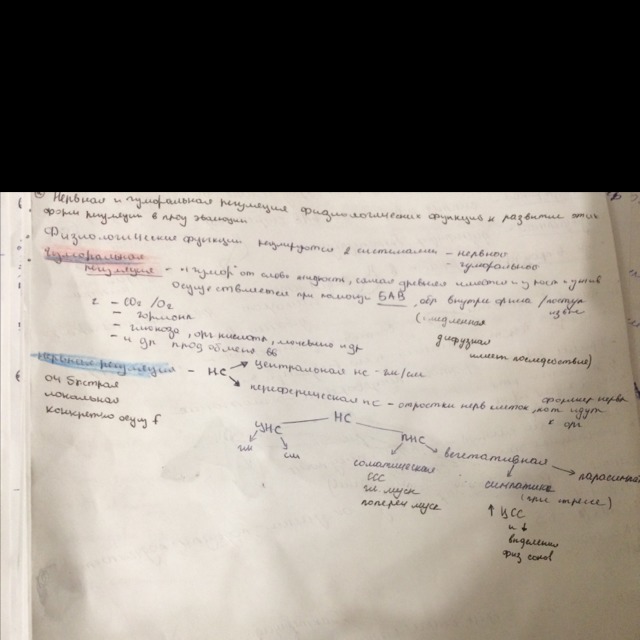 Нервная и гуморальная регуляция физиологических функций и развитие этих
форм регуляции в проц эволюции
Физиологические функции регулируются 2 системами - нервной
- гуморальной
Гуморальная
регуляция - "гумор" от слова жидкость, самая древняя имеется и у
осуществляется при помощи БАВ, обр внутри орг-ма / поступ
извне
- CO₂ / O₂
- гормоны
- глюкоза, орг кислота, мочевина идр
- и др прод обмена вв
(медленная
диффузная
имеет последствие)
Нервная регуляция - НС → центральная НС - гм/см
периферическая нс - отростки нерв клеток, кот идут
к орг
оч быстрая
локальная
конкретно осущ f
НС
ЦНС
ПНС
гм
см
соматическая
ССС
гл. муск
попереч муск
вегетативная
симпатика
(при стрессе)
парасимпат
↑ ЦСС
и ↓
выделении